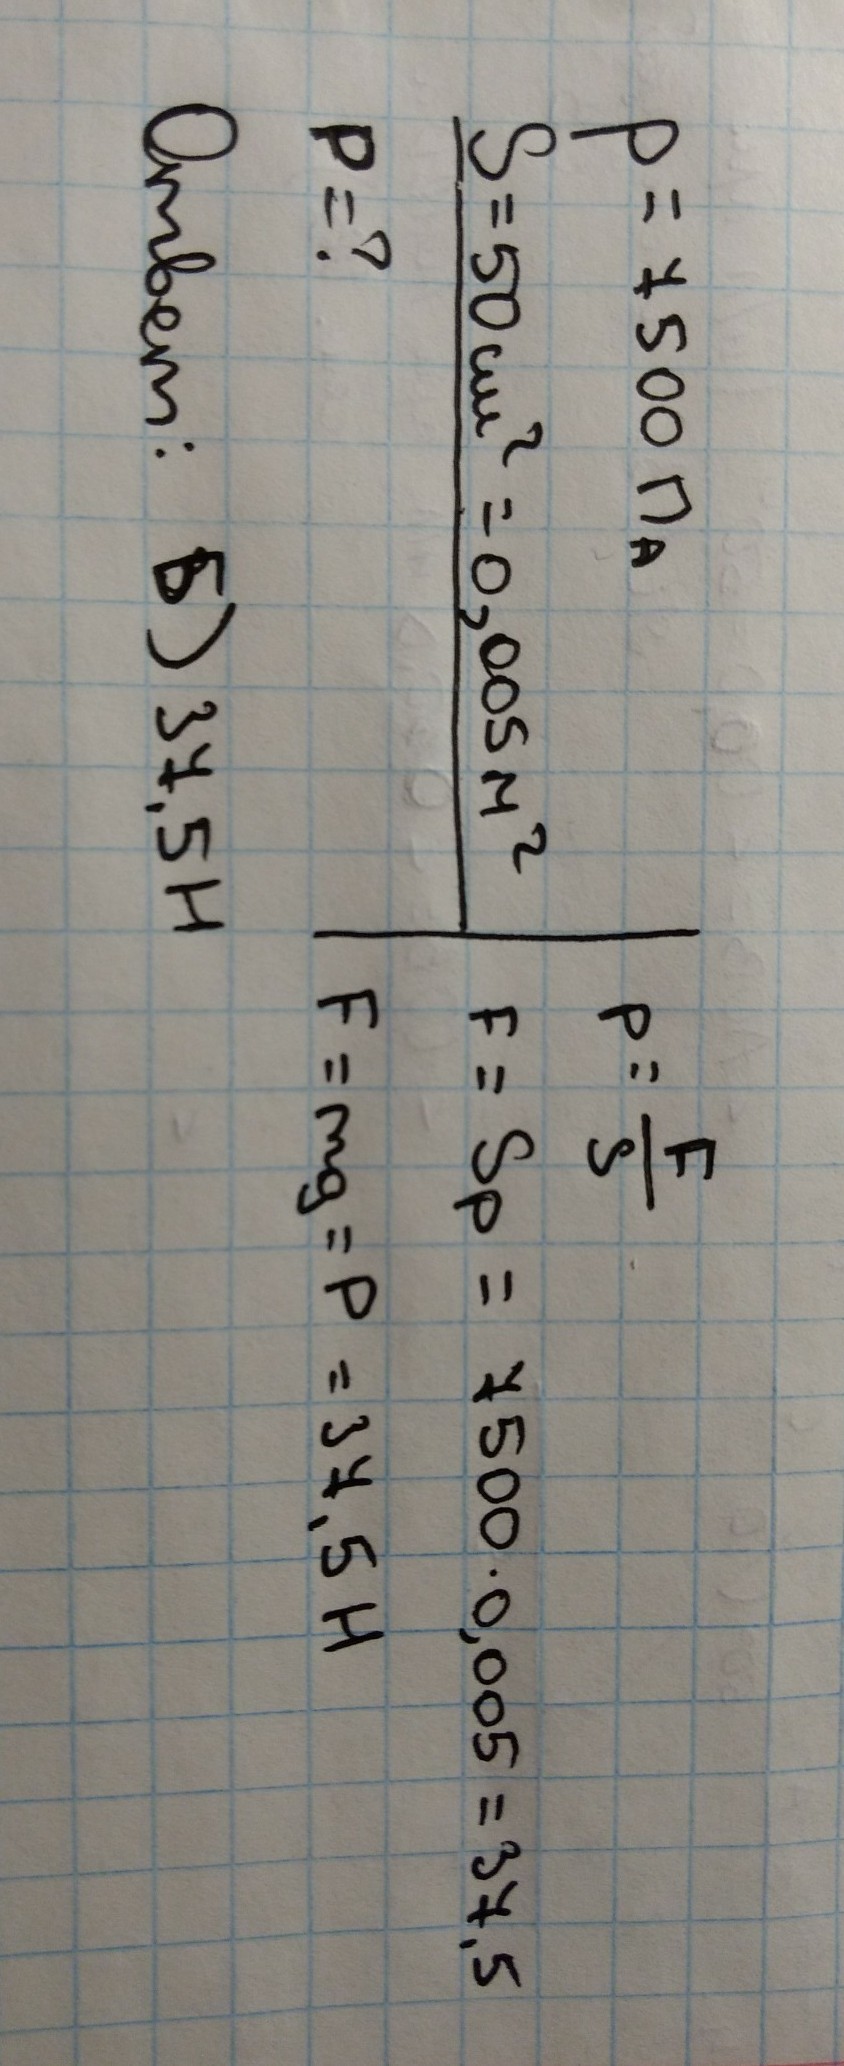 p = 7500 ПА
S = 50 см² = 0,005 м²
P = ?
p = F/S
F = Sp = 7500 · 0,005 = 37,5
F = mg = P = 37,5 Н
Ответ: Б) 37,5 Н